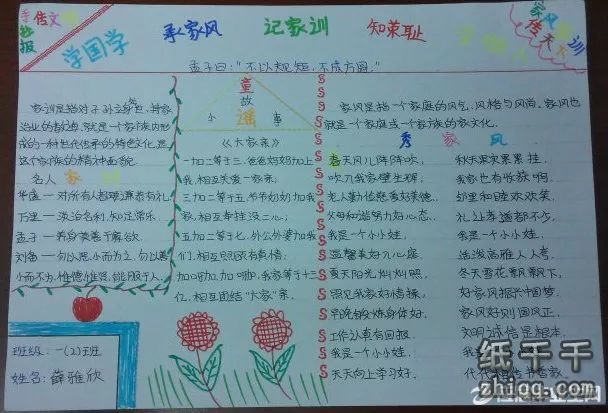 学国学
承家风
记家训
知荣耻
孟子曰："不以规矩，不成方圆。"
家训是指对子孙立身处世、持家
治业的教诲，就是一个家族内形
成的一种世代传承的特色文化,是
这个家族的精神面貌
名人家训
孟子——养身莫善于寡欲
刘备——勿以恶小而为之，勿以善
小而不为，惟德惟贤，能服于人。
班级：一(2)班
姓名：薛雅欣
童
故
小 谣 事
《大家亲》
一加二等于三，爸爸妈妈加上
我，相互关爱一家亲，
三加二等于五，爷爷奶奶加我
家，相互牵挂没二心，
五加二等于七，外公外婆加我
们，相互照顾有真情；
加呀加，加呀加，我家等于十三
位，相互团结"大家"亲，
家风是指一个家庭的风气，风格与风尚。家风也
就是一个家庭或一个家族的家文化。
秀家风
春天风儿阵阵吹，
吹刀我家壁生辉，
老人勤俭慈秀好美德，
父母和谐努力好心态，
我是一个小小娃，
温馨美好入心庭，
夏天阳光灿灿照，
照见我家好情操，
早晚锻炼身体好，
工作认真有回报，
我是一个小小娃，
天天向上学习好，
秋天果实累累挂，
我家也有收获啊，
邻里和睦欢欢笑，
礼让孝道都不少，
我是一个小小娃，
活泼高雅人人夸，
冬天雪花飘飘下，
好家风振兴中国梦，
家风好则国风正，
文明诚信是根本，
我是一个小小娃，
纸千千
zhiqq.com